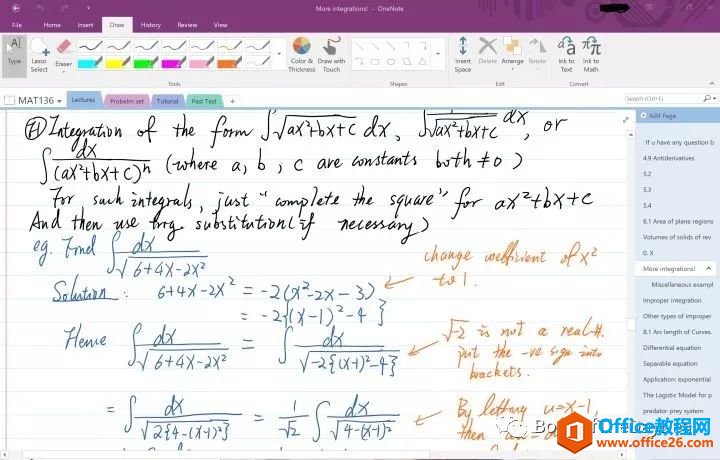 More integrations! - OneNote
File Home Insert Draw History Review View
Type
Lasso Select
Eraser
Color & Thickness
Draw with Touch
Insert Space
Delete
Arrange
Rotate
Ink to Text
Ink to Math
Tools
Shapes
Edit
Convert
MAT136
Lectures
Probelm set
Tutorial
Past Test
+
Search (Ctrl+E)
Add Page
If u have any question b
4.9 Antiderivatives
5.2
5.3
5.4
6.1 Area of plane regions
Volumes of solids of rev
0. X
More integrations!
Miscellaneous exampl
Improper integration
Other types of improper
8.1 Arc length of Curves.
Differential equation
Separable equation
Application: exponential
The Logistic Model for p
predator-prey system
Integration of the form ∫√(ax²+bx+c) dx, ∫1/√(ax²+bx+c) dx, or
∫dx/(ax²+bx+c)ⁿ (where a, b, c are constants both ≠0)
For such integrals, just "complete the square" for ax²+bx+c
And then use trig. substitution (if necessary)
eg. Find ∫dx/√(6+4x-2x²)
Solution: 6+4x-2x² = -2(x²-2x-3)
= -2{(x-1)²-4}
change coefficient of x²
to 1.
Hence ∫dx/√(6+4x-2x²) = ∫dx/√(-2{(x-1)²-4})
√-2 is not a real #.
put the -ve sign into
brackets.
= ∫dx/√(2{4-(x-1)²}) = 1/√2 ∫dx/√(4-(x-1)²)
By letting u=x-1,
then
Office教程网
www.office26.com